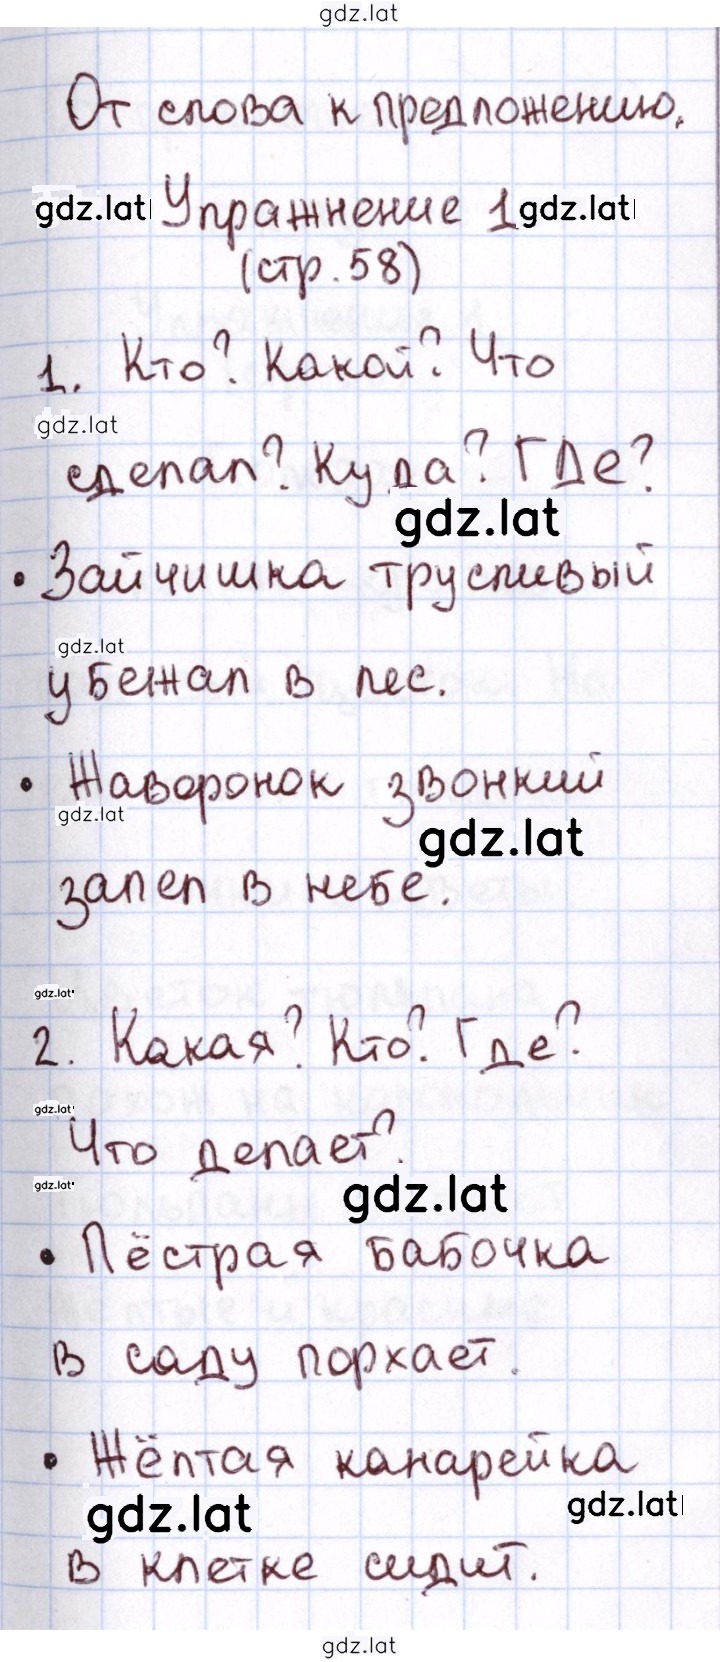 gdz.lat
От слова к предложению.
gdz.lat Упражнение 1 gdz.lat
(стр. 58)
1. Кто? Какой? Что
gdz.lat
сделал? Куда? Где?
gdz.lat
• Зайчишка трусливый
gdz.lat
убежал в лес.
• Жаворонок звонкий
gdz.lat gdz.lat
запел в небе.
gdz.lat
2. Какая? Кто? Где?
gdz.lat
Что делает?
gdz.lat gdz.lat
• Пёстрая бабочка
в саду порхает.
• Жёлтая канарейка
gdz.lat gdz.lat
в клетке сидит.
gdz.lat